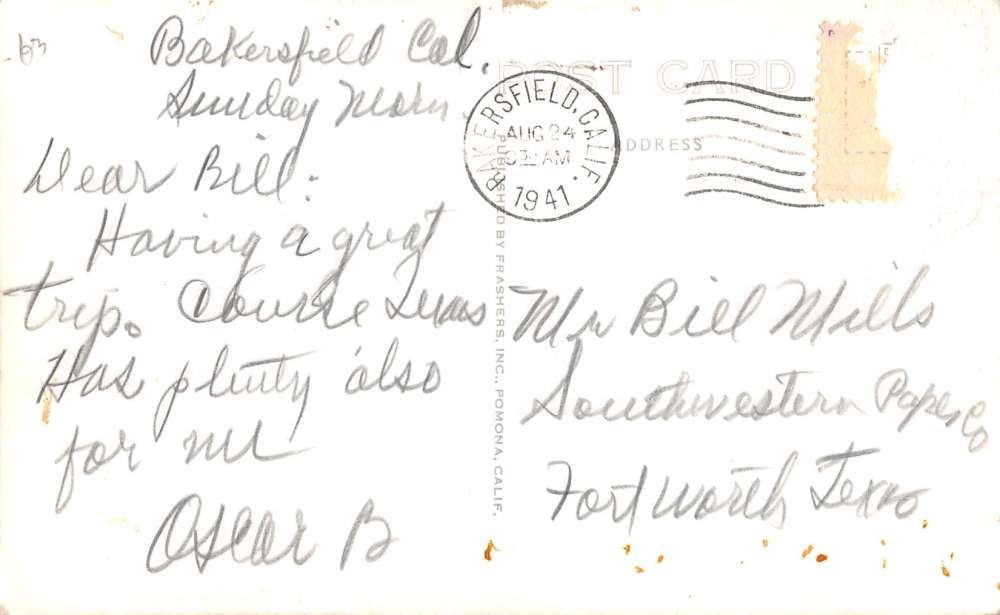 Bakersfield Cal.
Sunday Morn
Dear Bill:
Having a great
trip. Course Texas
Has plenty also
for me
Oscar B
POST CARD
ADDRESS
BAKERSFIELD, CALIF.
AUG 24
AM
1941
PUBLISHED BY FRASHERS, INC., POMONA, CALIF.
Mr Bill Mills
Southwestern Paper Co
Fort Worth Texas